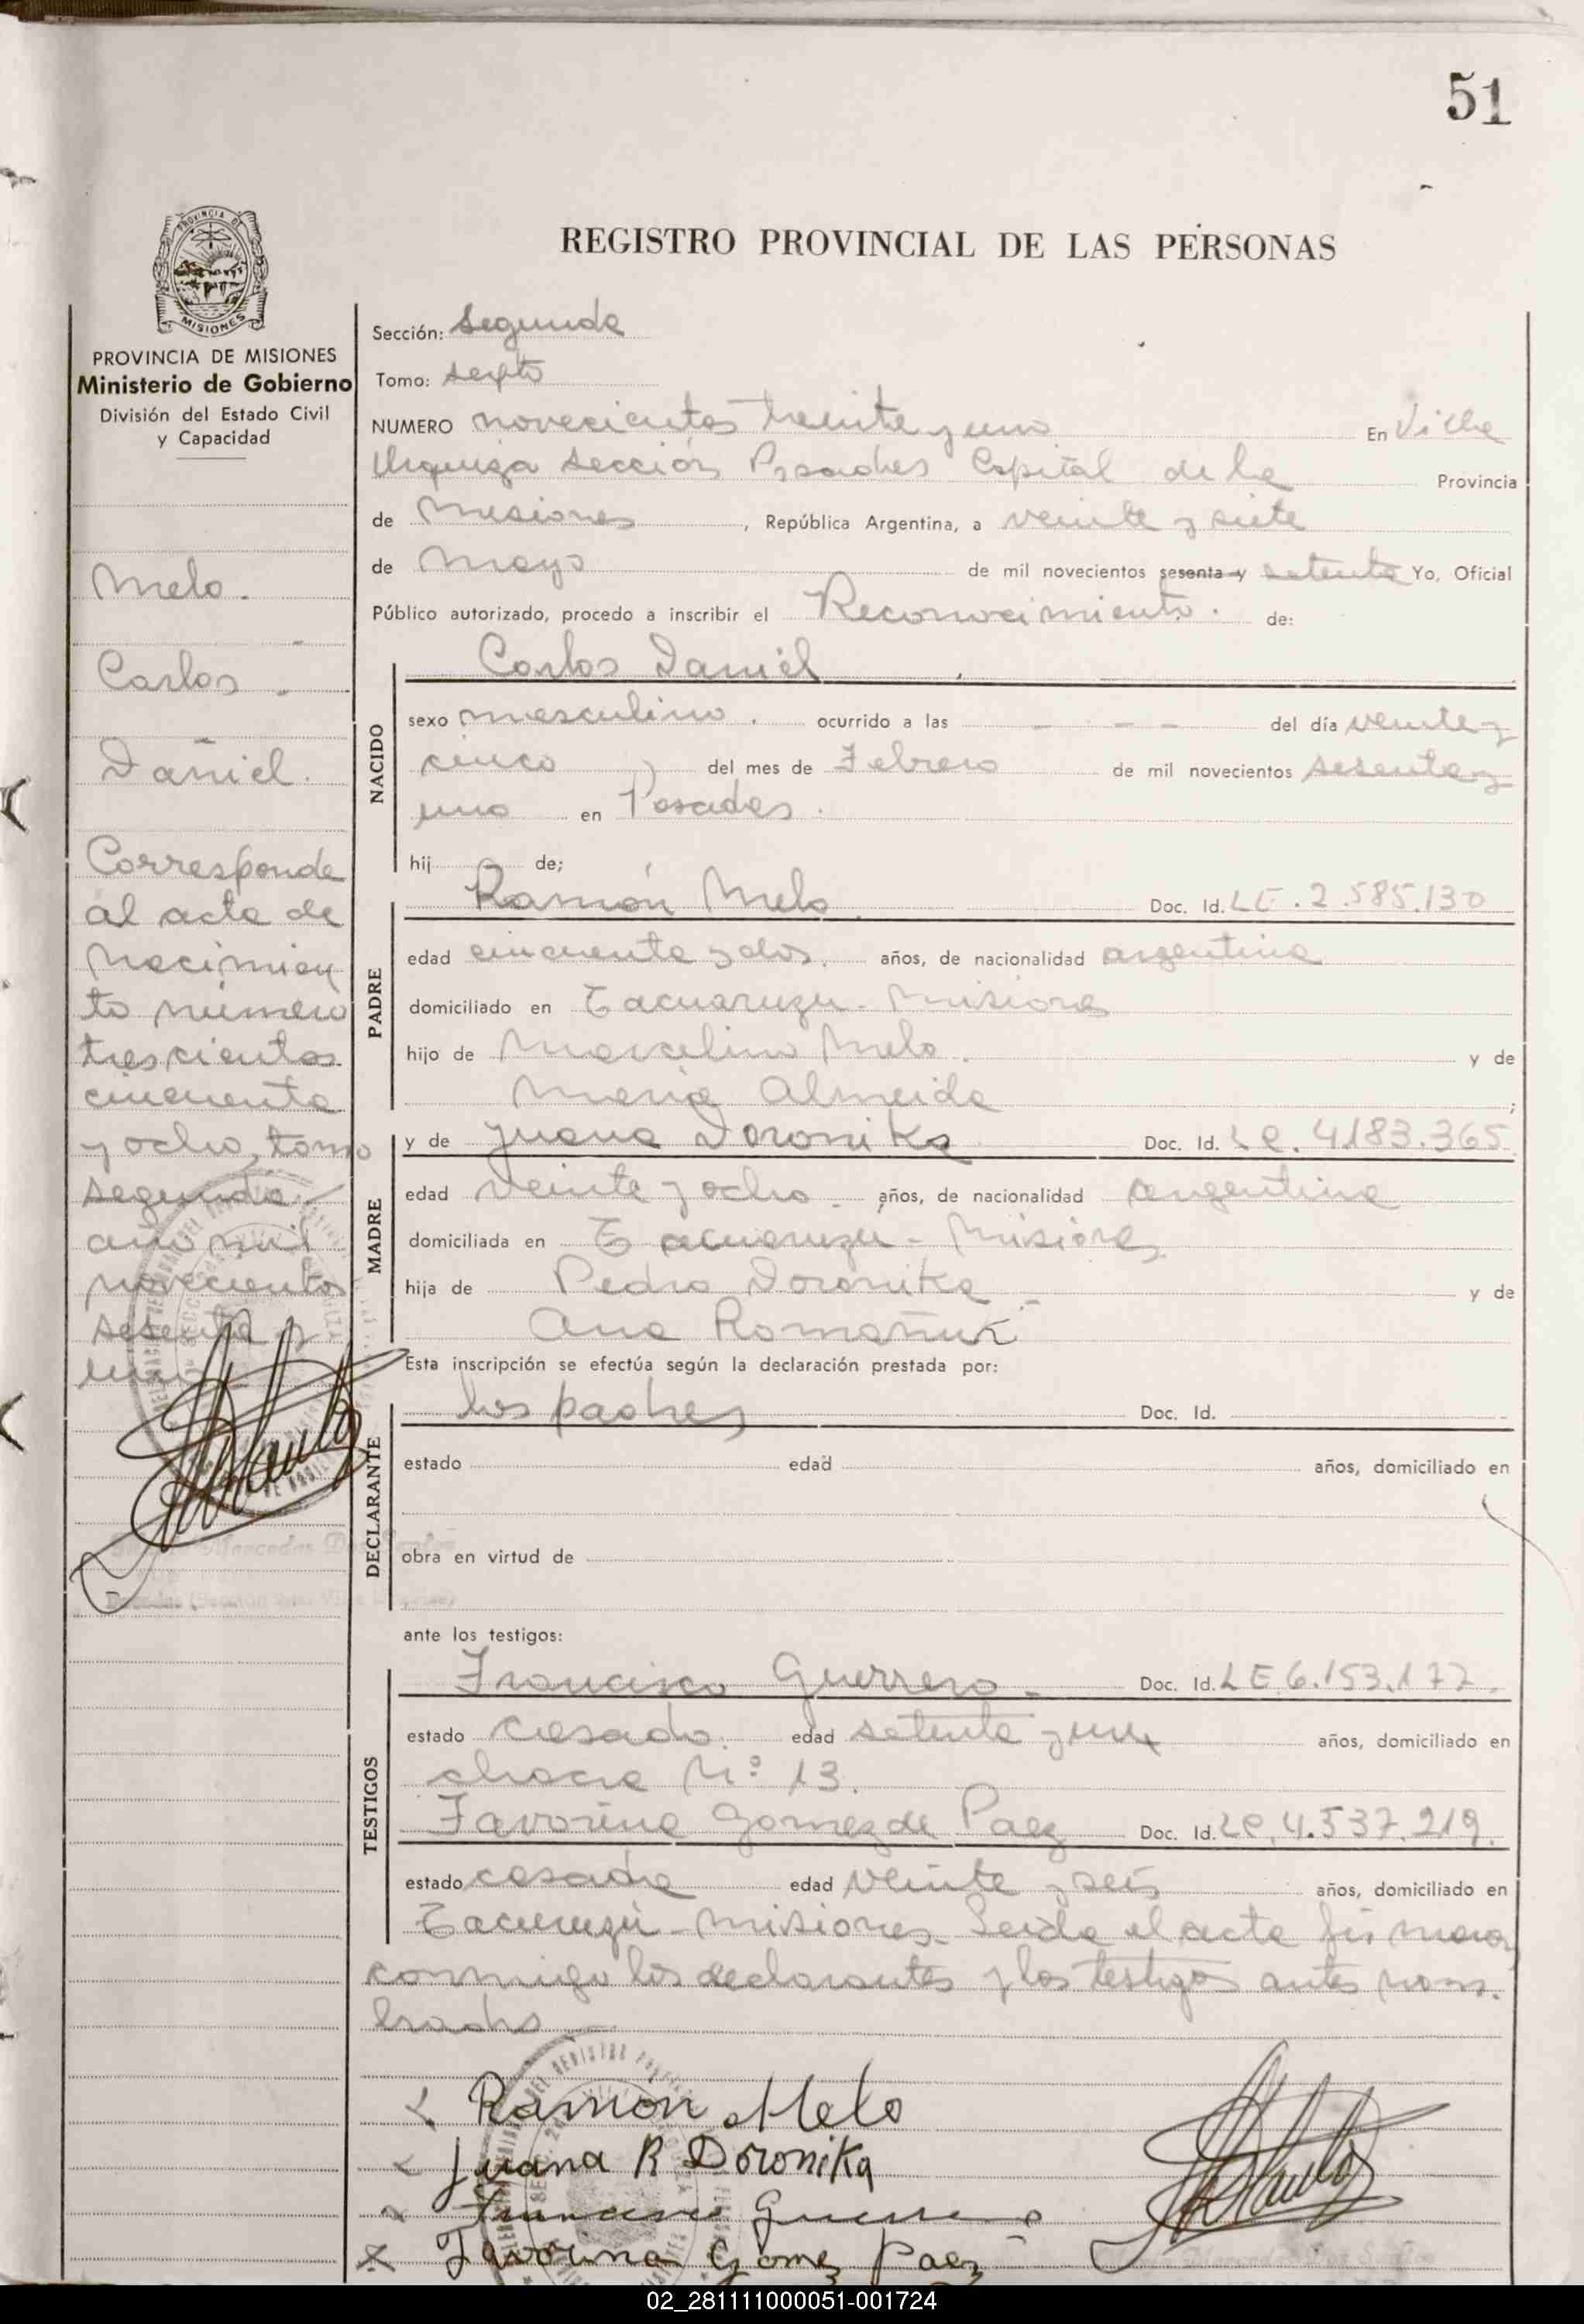 51
REGISTRO PROVINCIAL DE LAS PERSONAS
PROVINCIA DE MISIONES
Ministerio de Gobierno
División del Estado Civil
y Capacidad
Melo.
Carlos.
Daniel.
Corresponde
al acta de
nacimien
to número
trescientos
cincuenta
y ocho, tomo
segundo
año mil
novecientos
sesenta y
uno
Sección: Segunda
Tomo: sexto
NUMERO novecientos treinta y uno En Villa
Urquiza sección Posadas Capital de la Provincia
de Misiones, República Argentina, a veinte y siete
de Mayo de mil novecientos sesenta y setenta Yo, Oficial
Público autorizado, procedo a inscribir el Reconocimiento. de:
NACIDO
Carlos Daniel
sexo masculino. ocurrido a las - - - del día veinte y
cinco del mes de Febrero de mil novecientos sesenta y
uno en Posadas.
hij de;
PADRE
Ramón Melo Doc. Id. LE. 2.585.130
edad cincuenta y dos. años, de nacionalidad argentina
domiciliado en Tacuaruzu - Misiones
hijo de Marcelino Melo. y de
Maria Almeida ;
MADRE
y de Juana Doronika Doc. Id. Lc. 4.183.365
edad veinte y ocho años, de nacionalidad argentina
domiciliada en Tacuaruzu - Misiones
hija de Pedro Doronika y de
Ana Romañuk
Esta inscripción se efectúa según la declaración prestada por:
DECLARANTE
los padres Doc. Id.
estado edad años, domiciliado en
obra en virtud de
ante los testigos:
TESTIGOS
Francisco Guerrero Doc. Id. LE 6.153.177.
estado casado. edad setenta y un años, domiciliado en
chacra N° 13.
Favorina Gomez de Paez Doc. Id. Lc. 4.537.219.
estado casada edad veinte y seis años, domiciliado en
Tacuruzu - Misiones. Leida el acta firman
conmigo los declarantes y los testigos antes nom-
brados
Ramón Melo
Juana R Doronika
Francisco Guerrero
Favorina Gomez Paez
02_281111000051-001724